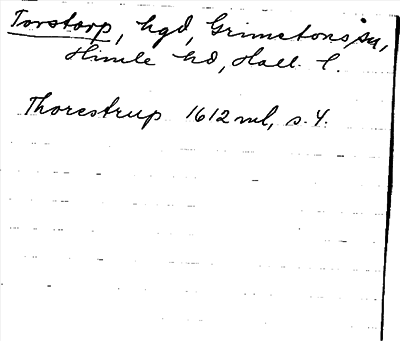 Torstorp, hgd, Grimetons sn,
Himle hd, Hall. l.
Thorestrup 1612 ml, s. 4.